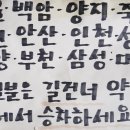 백암·양지·죽
안산·인천
부천·삼성·
분은 길건너 약
에서 승차하세요